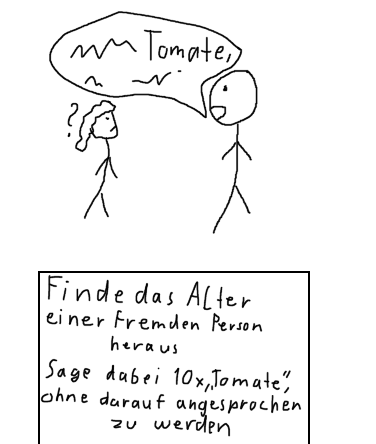 Tomate,
?
Finde das Alter
einer fremden Person
heraus
Sage dabei 10x „Tomate",
ohne darauf angesprochen
zu werden